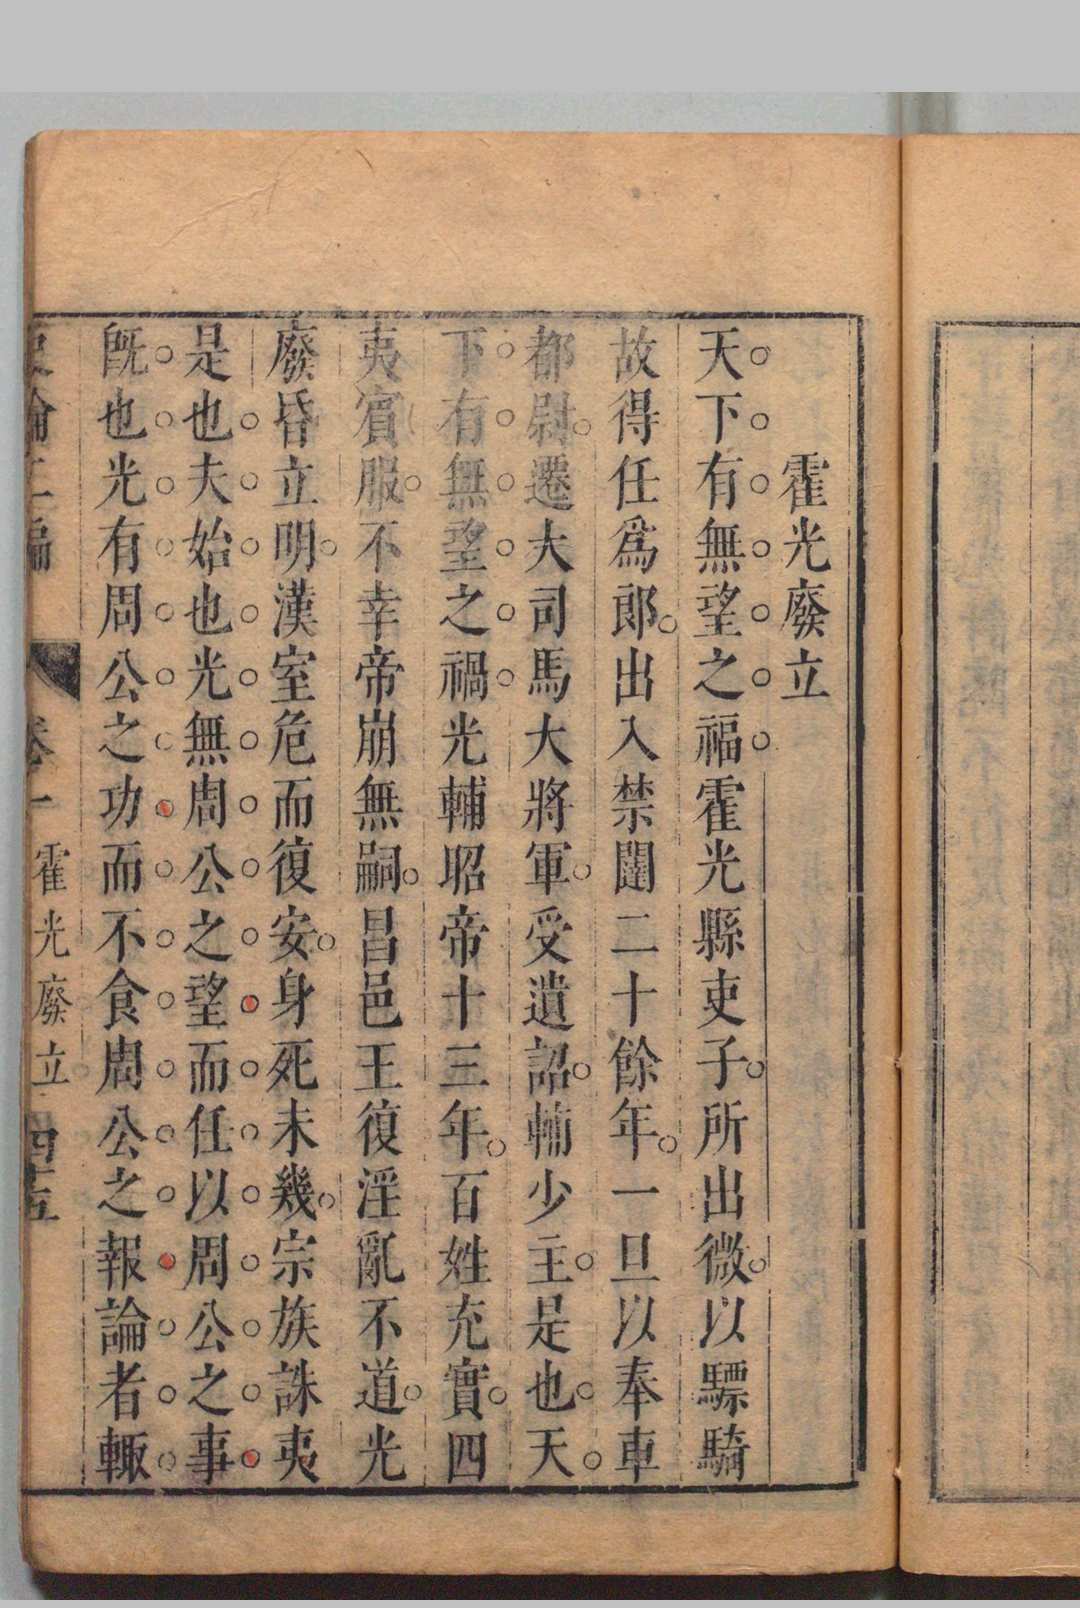 霍光廢立
天下有無望之福霍光縣吏子所出微以驃騎
故得任爲郎出入禁闥二十餘年一旦以奉車
都尉遷大司馬大將軍受遺詔輔少主是也天
下有無望之禍光輔昭帝十三年百姓充實四
夷賓服不幸帝崩無嗣昌邑王復淫亂不道光
廢昏立明漢室危而復安身死未幾宗族誅夷
是也夫始也光無周公之望而任以周公之事
旣也光有周公之功而不食周公之報論者輙
史論正編 卷一 霍光廢立 四五